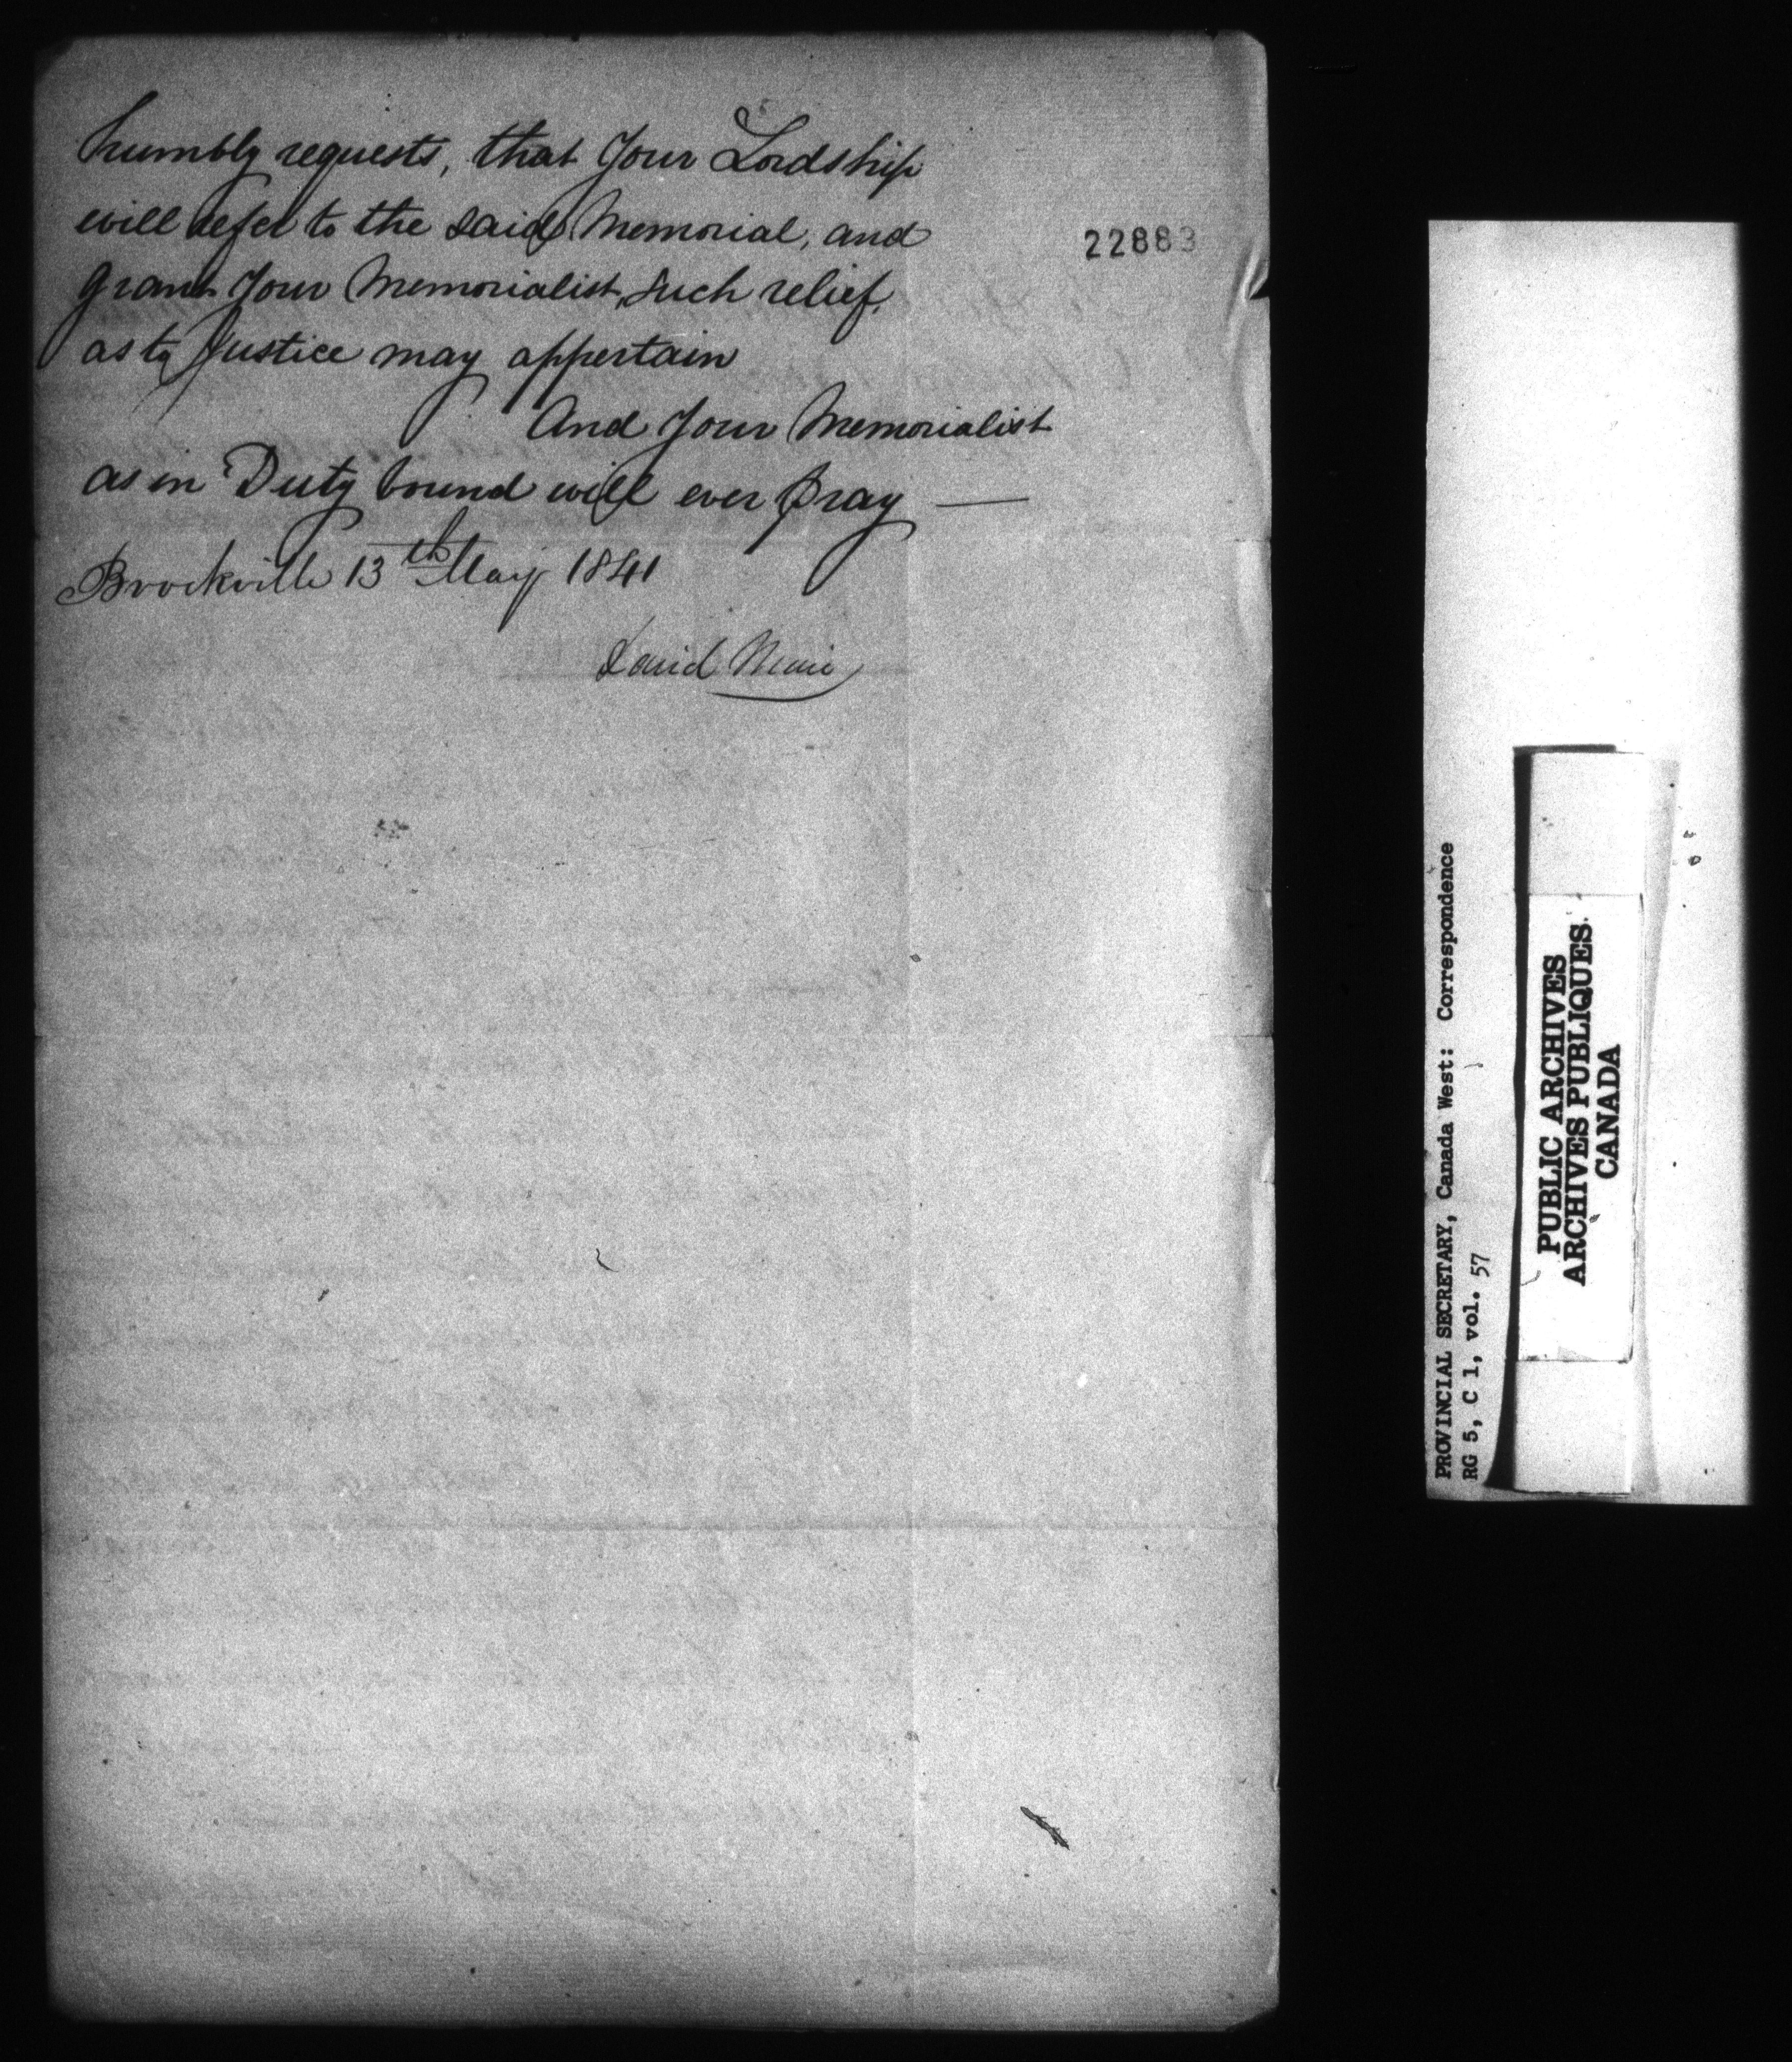 humbly requests, that Your Lordship
will refer to the said Memorial, and
22883
grant Your Memorialist, such relief,
as to Justice may appertain
And Your Memorialist
as in Duty bound will ever pray —
Brockville 13th May 1841
David Muir
PROVINCIAL SECRETARY, Canada West: Correspondence
RG 5, C 1, vol. 57
PUBLIC ARCHIVES
ARCHIVES PUBLIQUES
CANADA